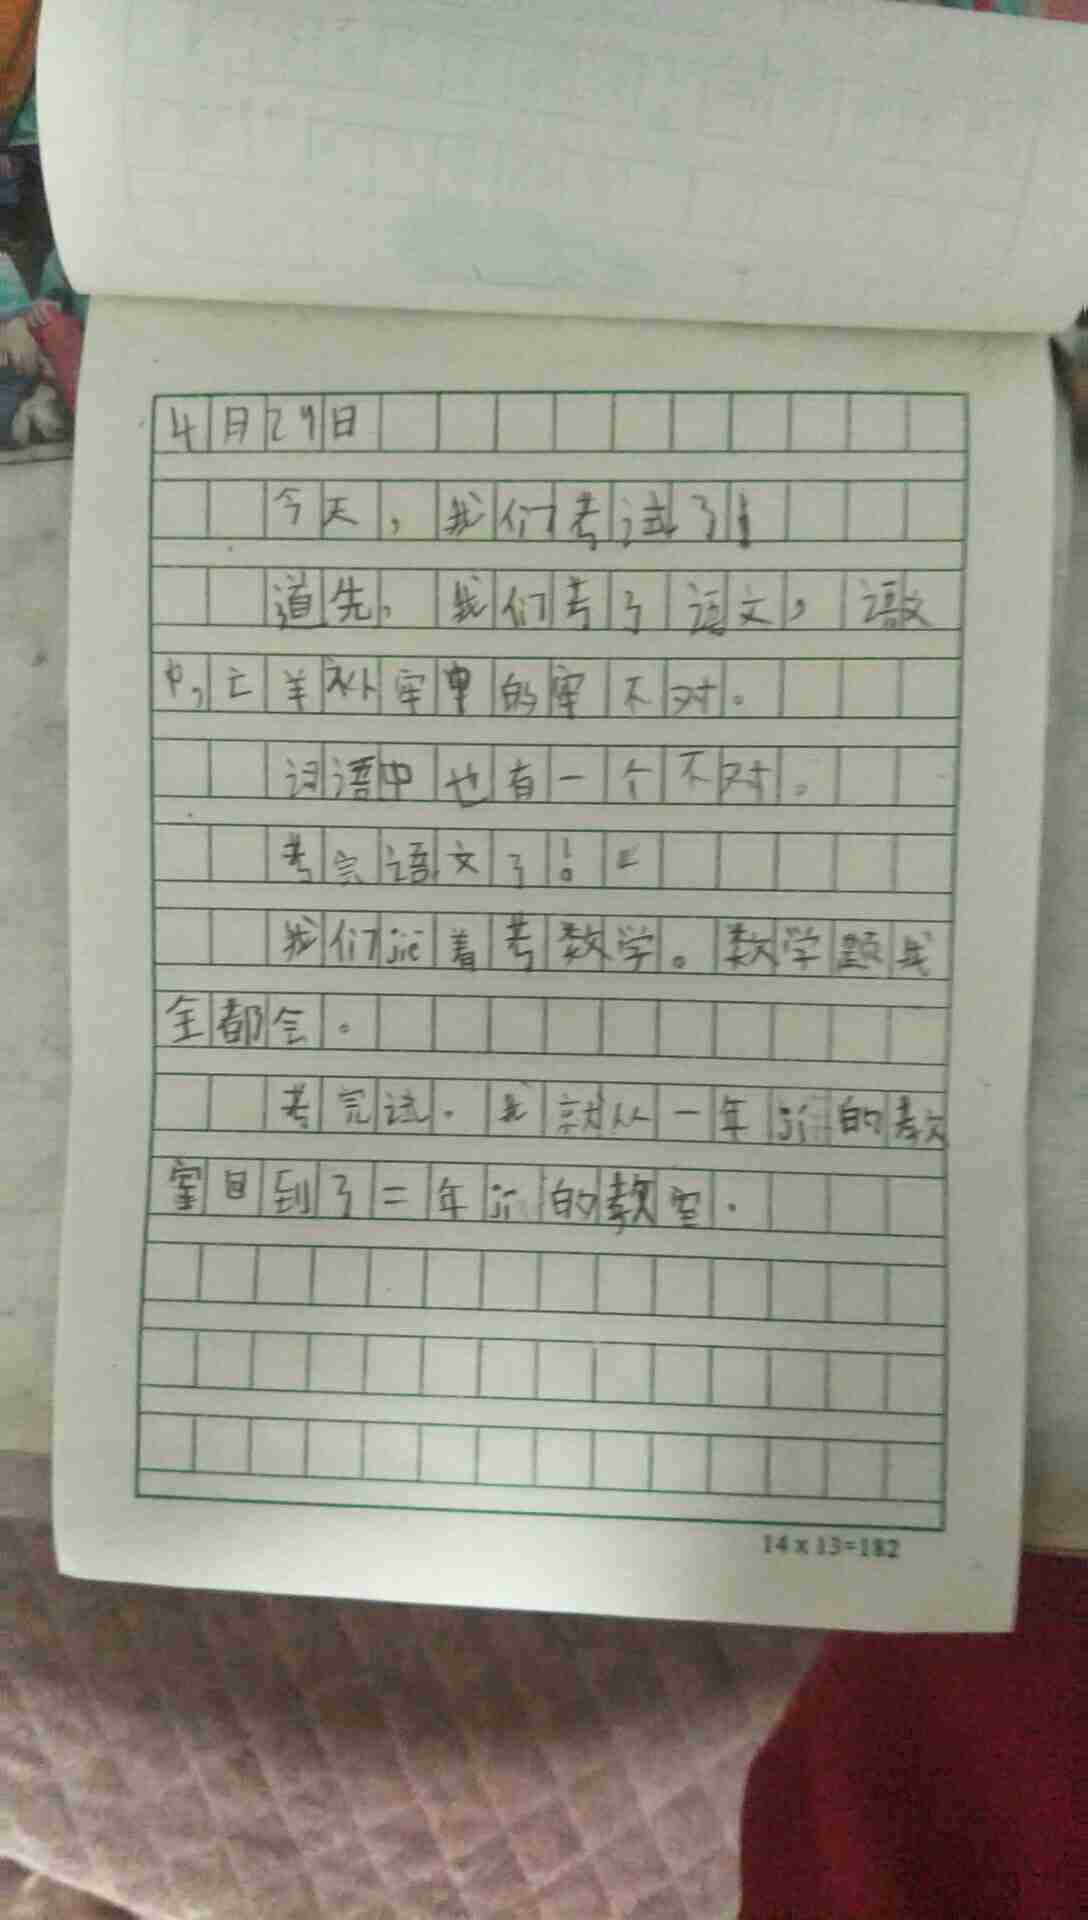 4月29日
今天，我们考试了！
道先，我们考了语文，语文
中，亡羊补牢中的牢不对。
词语中也有一个不对。
考完语文了！
我们jiē着考数学。数学题我
全都会。
考完试．我就从一年jí的教
室回到了二年jí的教室．
14 x 13=182